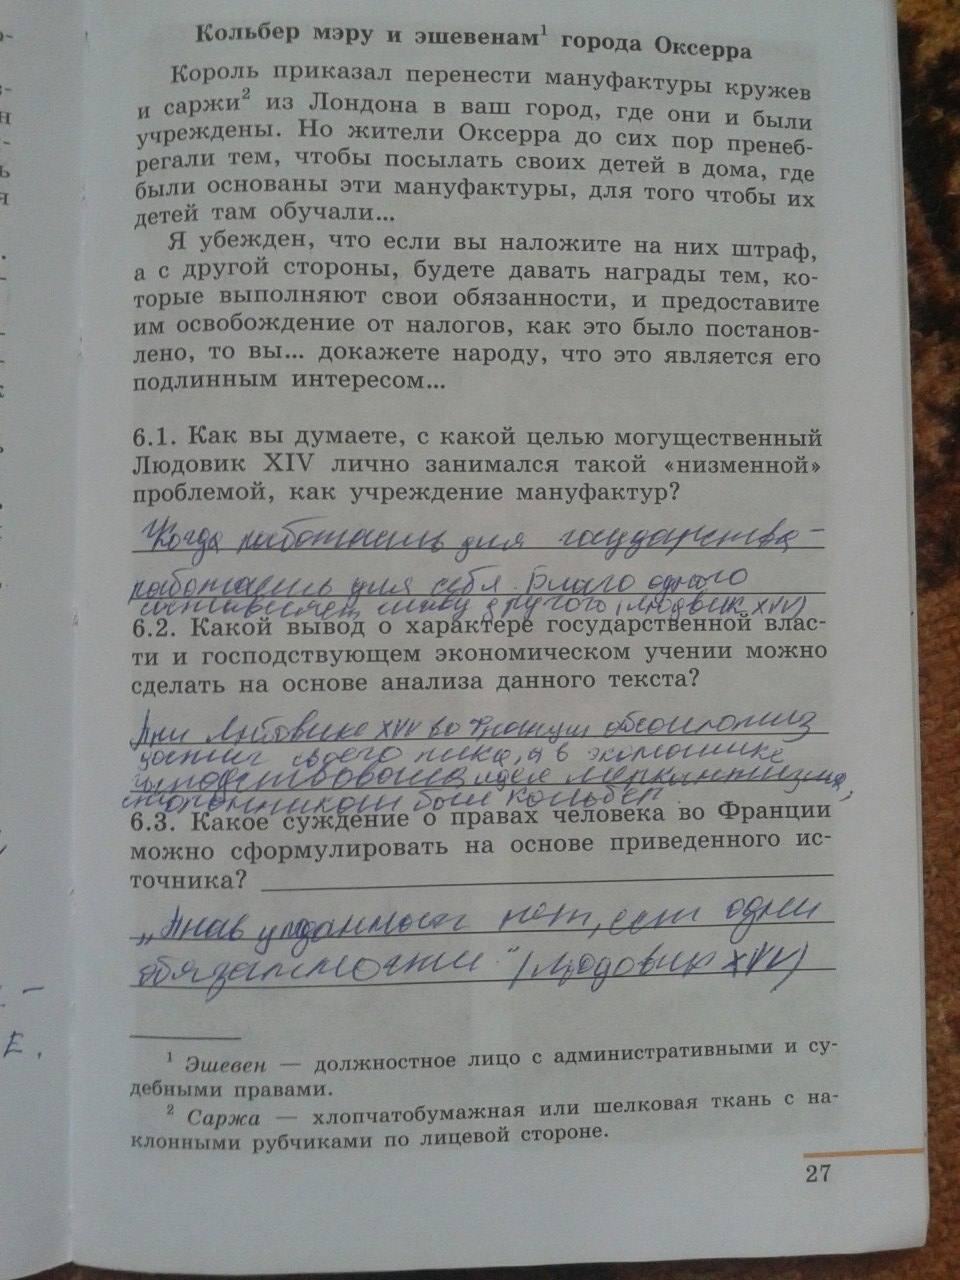 Кольбер мэру и эшевенам¹ города Оксерра
Король приказал перенести мануфактуры кружев
и саржи² из Лондона в ваш город, где они и были
учреждены. Но жители Оксерра до сих пор пренеб-
регали тем, чтобы посылать своих детей в дома, где
были основаны эти мануфактуры, для того чтобы их
детей там обучали...
Я убежден, что если вы наложите на них штраф,
а с другой стороны, будете давать награды тем, ко-
торые выполняют свои обязанности, и предоставите
им освобождение от налогов, как это было постанов-
лено, то вы... докажете народу, что это является его
подлинным интересом...
6.1. Как вы думаете, с какой целью могущественный
Людовик XIV лично занимался такой «низменной»
проблемой, как учреждение мануфактур?
Когда работаешь для государства –
работаешь для себя. Благо одного
составляет славу другого (Людовик XIV)
6.2. Какой вывод о характере государственной влас-
ти и господствующем экономическом учении можно
сделать на основе анализа данного текста?
При Людовике XIV во Франции абсолютизм
достиг своего пика, а в экономике
господствовала идея меркантилизма,
сторонником был Кольбер.
6.3. Какое суждение о правах человека во Франции
можно сформулировать на основе приведенного ис-
точника?
„Прав у подданных нет, есть одни
обязанности." (Людовик XIV)
¹ Эшевен — должностное лицо с административными и су-
дебными правами.
² Саржа — хлопчатобумажная или шелковая ткань с на-
клонными рубчиками по лицевой стороне.
27
Е.